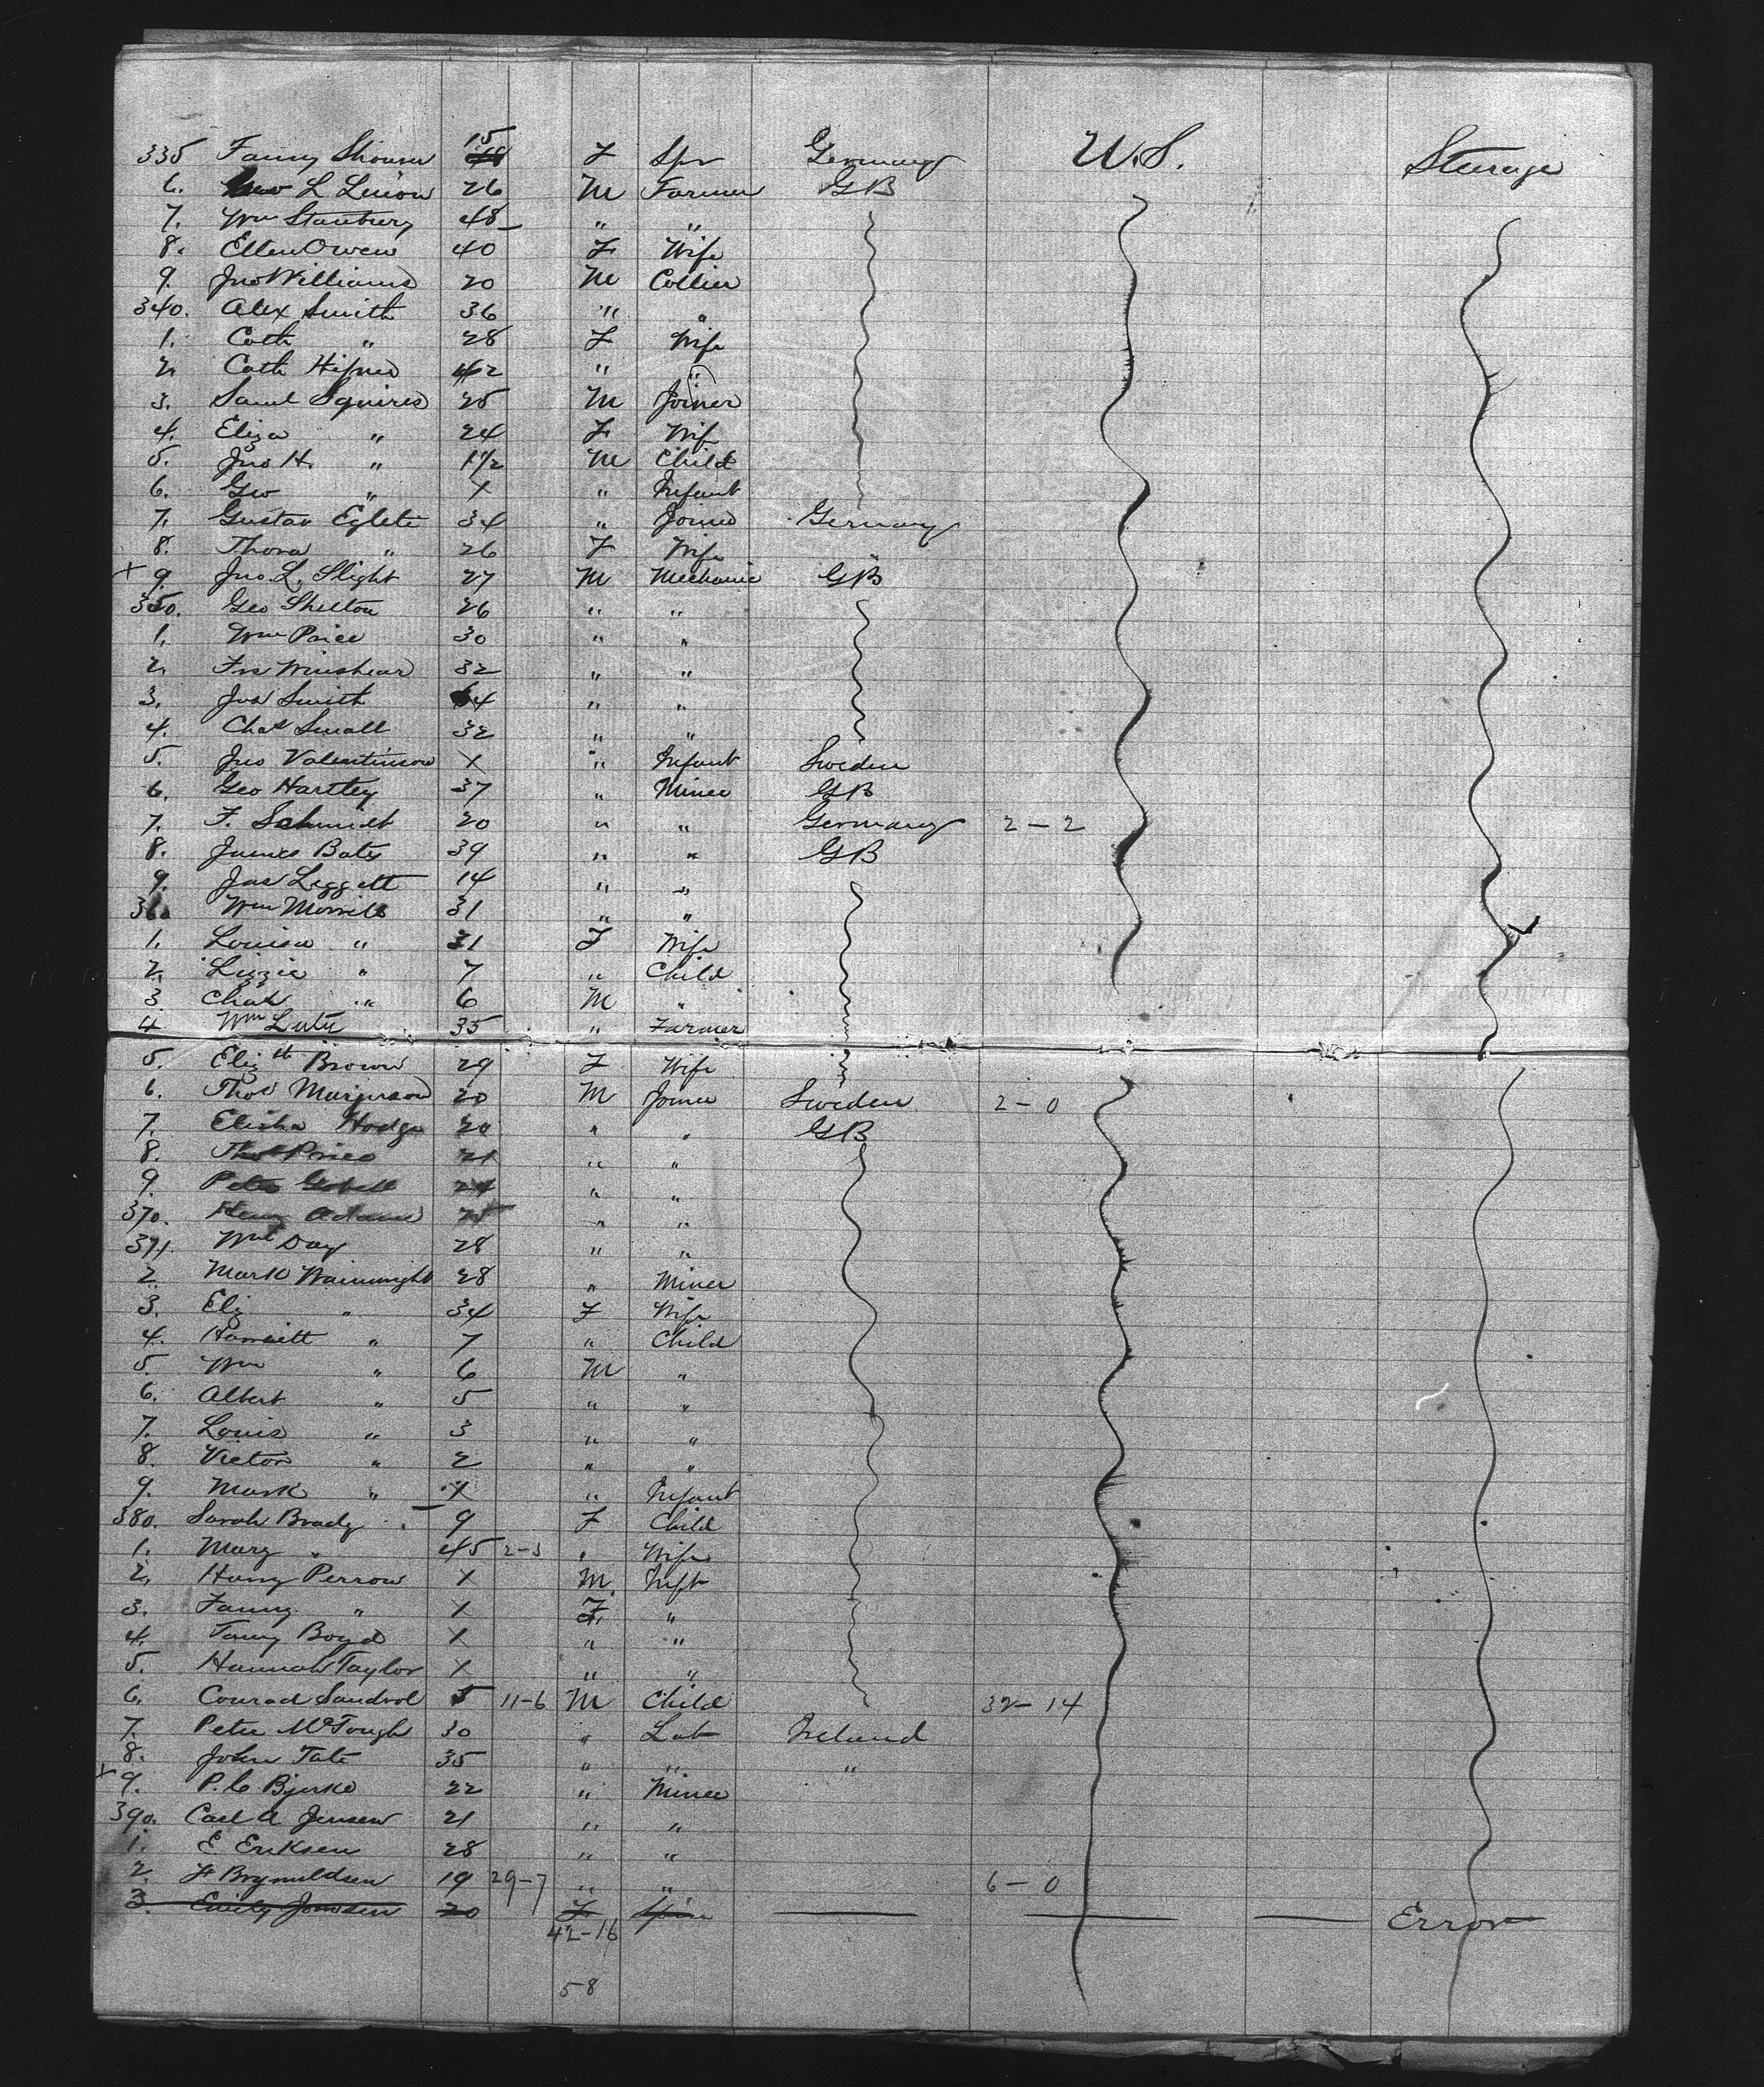 335 Fanny 15 F Spr Germany U.S. Steerage
6. L 26 M Farmer GB
7. Wm Stanbury 48 " "
8. Ellen Owen 40 F Wife
9. Jno Williams 20 M Collier
340. Alex Smith 36 " "
1. Cath " 28 F Wife
2 Cath 42 " "
3. Saml Squires 25 M Joiner
4. Eliza " 24 F Wife
5. Jno H. " 1 1/2 M Child
6. Geo " X " Infant
7. Gustav 34 " Joiner Germany
8. Thora " 26 F Wife
x 9. Jno. L. Slight 27 M Mechanic GB
350. Geo Shelton 26 " "
1. Wm Price 30 " "
2. 32 " "
3. Jos Smith 64 " "
4. Chas Small 32 " "
5. Jno Valentinson X " Infant Sweden
6. Geo Hartley 37 " Miner GB
7. F. Schmidt 20 " " Germany 2-2
8. James Bates 39 " " GB
9. Jas Leggett 14 " "
36 Wm Morrill 31 " "
1. Louisa " 31 F Wife
2. Lizzie " 7 " Child
3 Chas " 6 M "
4 Wm 35 " Farmer
5. Elizth Brown 29 F Wife
6. Thos 20 M Joiner Sweden 2-0
7. Elisha Hodge 20 " " GB
8. Thos Price 21 " "
9. Peter 24 " "
370. Henry Adams 25 " "
371. Wm Day 28 " "
2. Mark Wainwright 28 " Miner
3. Eliz " 34 F Wife
4. Harriett " 7 " Child
5. Wm " 6 M "
6. Albert " 5 " "
7. Louis " 3 " "
8. Victor " 2 " "
9. Mark " X " Infant
380. Sarah Brady 9 F Child
1. Mary " 45 2-3 " Wife
2. Harry Perrow X M Inft
3. Fanny " X F. "
4. Boyd X " "
5. Hannah Taylor X " "
6. Conrad Sandvol 5 11-6 M Child 32-14
7. Peter McGough 30 " Lab Ireland
8. John Tate 35 " " "
x 9. P. C. Bjerke 22 " Miner
390. Carl A Jensen 21 " "
1. E Eriksen 28 " "
2. Brynildsen 19 29-7 " " 6-0
3. Emily 20 F Spin Error
42-16
58